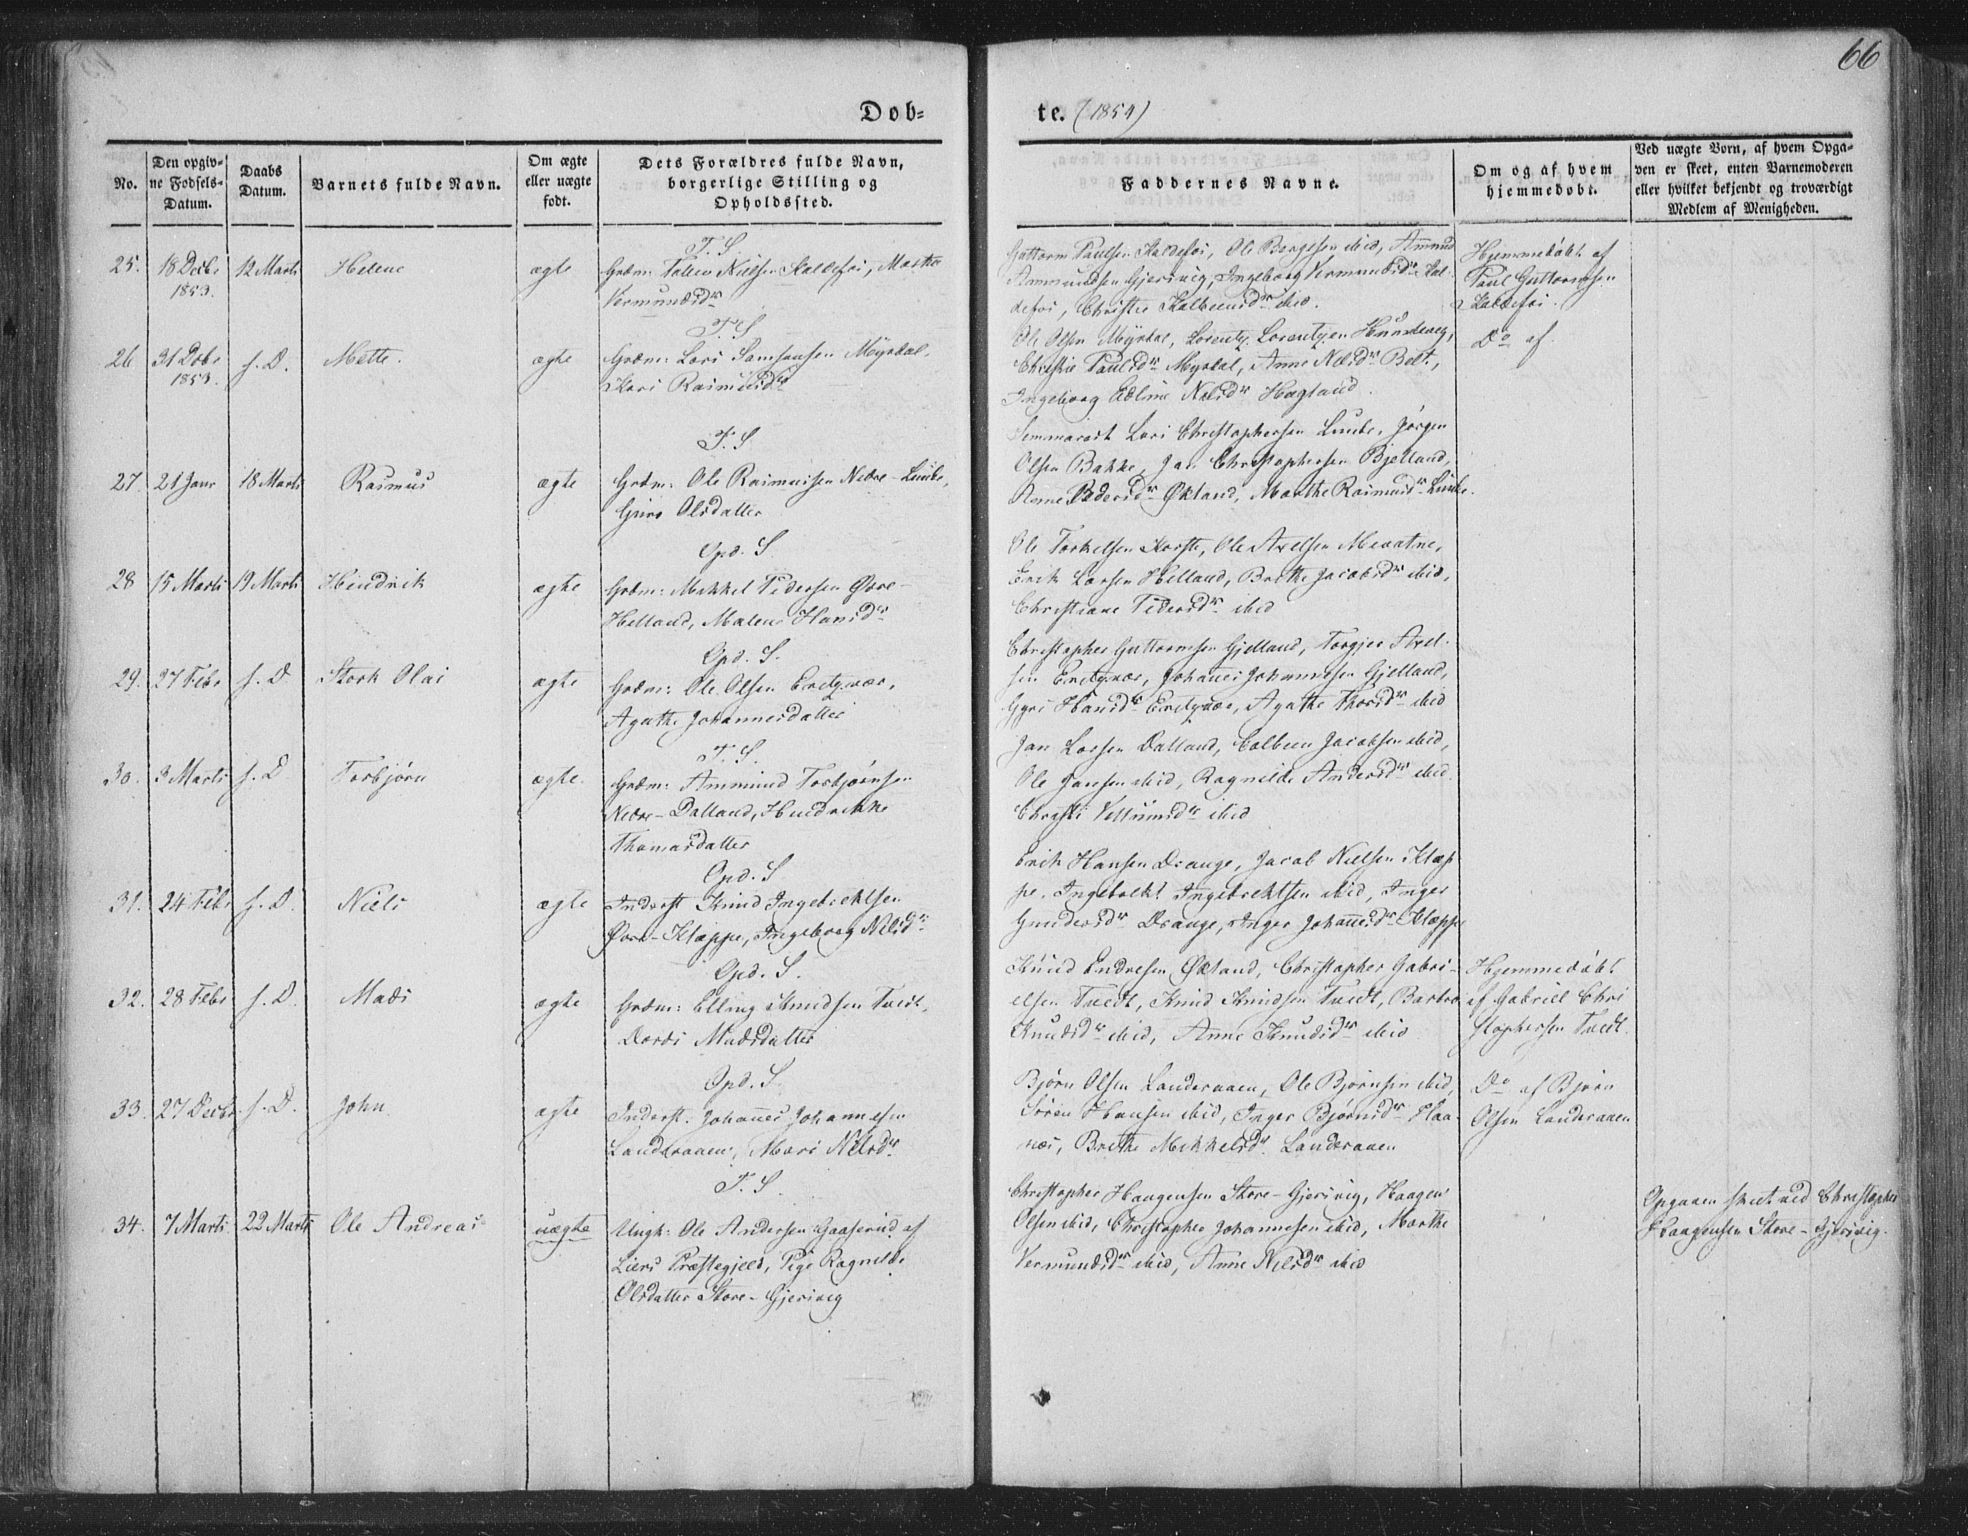 66
Døb-
te. (1854)
No.
Den opgiv-
ne Fødsels-
Datum.
Daabs
Datum.
Barnets fulde Navn.
Om ægte
eller uægte
født.
Dets Forældres fulde Navn,
borgerlige Stilling og
Opholdssted.
Faddernes Navne.
Om og af hvem
hjemmedøbt.
Ved uægte Børn, af hvem Opga-
ven er skeet, enten Barnemoderen
eller hvilket bekjendt og troværdigt
Medlem af Menigheden.
T. S
25. 18 Decbr 12 Marts Helene ægte
1853.
Grdm: Nielsen Martha
Vermundsdr
Guttorm Paulsen Ole ibid, Ammund
Ammundsen Gjersvig, Ingeborg Vermundsdr
Christie ibid.
Hjemmedøbt af
Paul Guttormsen
T. S
26 31 Dcbr s. D. Mette. ægte
1853.
Grdm: Lars Samsonsen Myrdal,
Kari Rasmusdr
Ole Olsen Myrdal, Lorentz Lorentzen
Christie Paulsdr Myrdal, Anne Nelsdr
Ingeborg Nelsdr Hagland.
Do af
T. S
27. 21 Janr 18 Marts Rasmus ægte
Grdm: Ole Rasmussen Nedre-Lunde,
Guro Olsdatter
Lars Christophersen Lunde, Jørgen
Olsen Bakke, Jan Christophersen Bjelland,
Anne Pedersdr Økland, Marthe Rasmusdr Lunde.
Opd. S.
28 15 Marts 19 Marts Hendrik ægte
Grdm: Mikkel Pedersen Øvre-
Helland, Malene Hansdr
Ole Torkelsen Ole Axelsen Mevatne,
Erik Larsen Helland, Brithe Jacobsdr ibid,
Christiane Pedersdr ibid
Opd. S.
29. 27 Febr s. D Stork Olai ægte
Grdm: Ole Olsen Engevær,
Agathe Johannesdatter
Christopher Guttormsen Gjelland, Torgjer Axel-
sen Johannes Johannesen Gjelland,
Hansdr Agathe Thorsdr ibid
T. S.
30. 3 Marts s. D Torbjørn ægte.
Grdm: Ammund Torbjørnsen
Nedre-Dalland, Hendrikke
Thomasdatter
Jan Larsen Dalland, Jacobsen ibid,
Ole Jansen ibid, Ragnilde Andersdr ibid
Christi ibid
Opd. S
31. 24 Febr s. D. Niels ægte
Inderst Knud Ingebrektsen
Øvre-Kleppe, Ingeborg Nilsd
Erik Hansen Drange, Jacob Nielsen Klep
pe. Ingebrekt Ingebrektsen ibid, Inger
Gundersdr Drange, Inger Johannesdr Kleppe
Opd. S.
32. 28 Febr s. D. Mads ægte
Grdm: Elling Knudsen Tvedt,
Dordi Madsdatter
Knud Endresen Økland, Christopher Gabri-
elsen Tvedt, Knud Knudsen Tvedt, Barbro
Knudsdr ibid, Anne Knudsdr ibid
Hjemmedøbt
af Gabriel Chri
stophersen Tvedt.
Opd. S.
33. 27 Decbr s. D. John ægte
Inderst. Johannes Johannesen
Landeraaen, Mari Nilsdr
Bjørn Olsen Landeraaen, Ole Bjørnsen ibid,
Søren Hansen ibid, Inger Bjørnsdr
Brithe Mikkelsdr. Landeraaen
Do af Bjørn
Olsen Landeraaen
T. S
34. 7 Marts 22 Marts Ole Andreas uægte
Ungk: Ole Andersen Gaaserud af
Liers Præstegjeld, Pige Ragnilde
Olsdatter Store-Gjersvig
Christopher Haagensen Store-Gjersvig, Haagen
Olsen ibid, Christopher Johannesen ibid, Marthe
Vermundsdr ibid, Anne Nilsdr ibid
Opgaven skeet ved Christopher
Haagensen Store-Gjersvig.